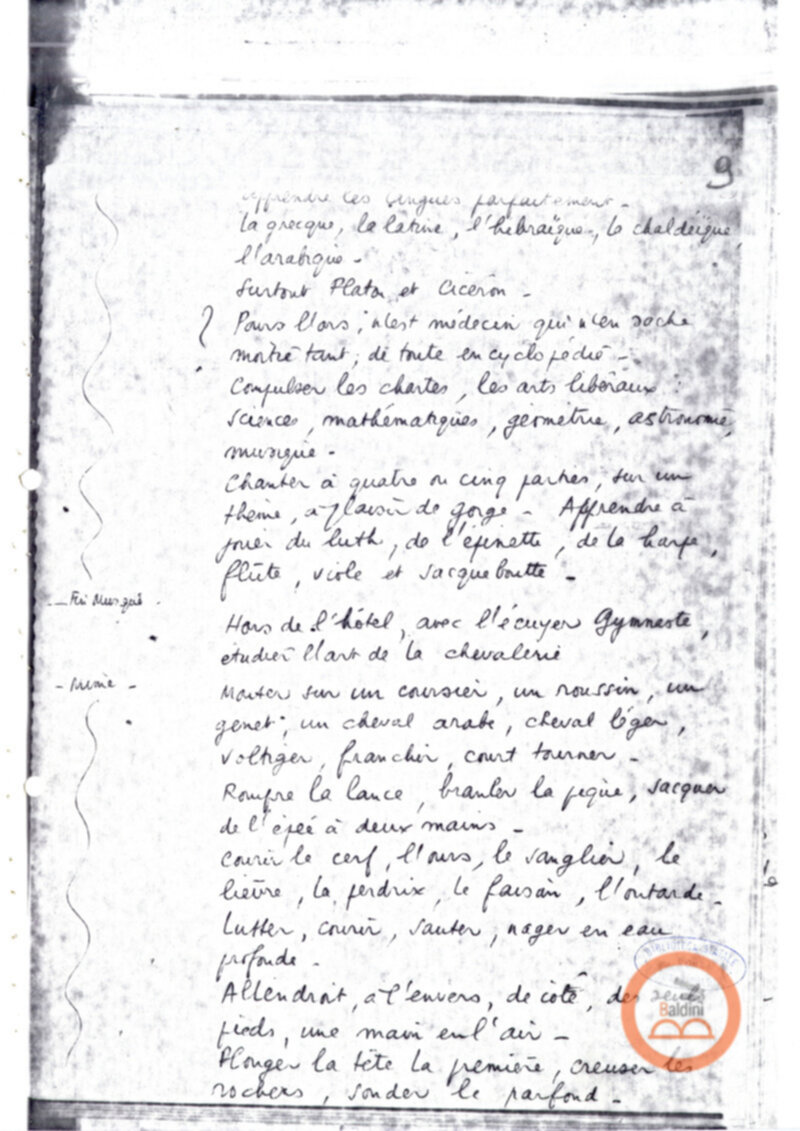 9
apprendre les langues parfaitement -
la grecque, la latine, l'hebraïque, la chaldéïque,
l'arabique -
surtout Platon et Ciceron -
Pours lors, n'est médecin qui n'en sache
moitié tant, de toute encyclopédie -
Compulser les chartes, les arts libéraux :
Sciences, mathématiques, géométrie, astronomie,
musique -
Chanter à quatre ou cinq parties, sur un
thème, à plaisir de gorge - Apprendre à
jouer du luth, de l'épinette, de la harpe,
flûte, viole et sacqueboutte -
- Fin Musique
Hors de l'hôtel, avec l'écuyer Gymnaste,
étudier l'art de la chevalerie
- Mime -
Monter sur un coursier, un roussin, un
genet, un cheval arabe, cheval léger,
voltiger, franchir, court tourner -
Rompre la lance, branler la pique, sacquer
de l'épée à deux mains -
Courir le cerf, l'ours, le sanglier, le
lièvre, la perdrix, le faisan, l'outarde -
Lutter, courir, sauter, nager en eau
profonde -
Allendroit, à l'envers, de coté, des
pieds, une main en l'air -
Plonger la tête la première, creuser les
rochers, sonder le parfond -
Baldini